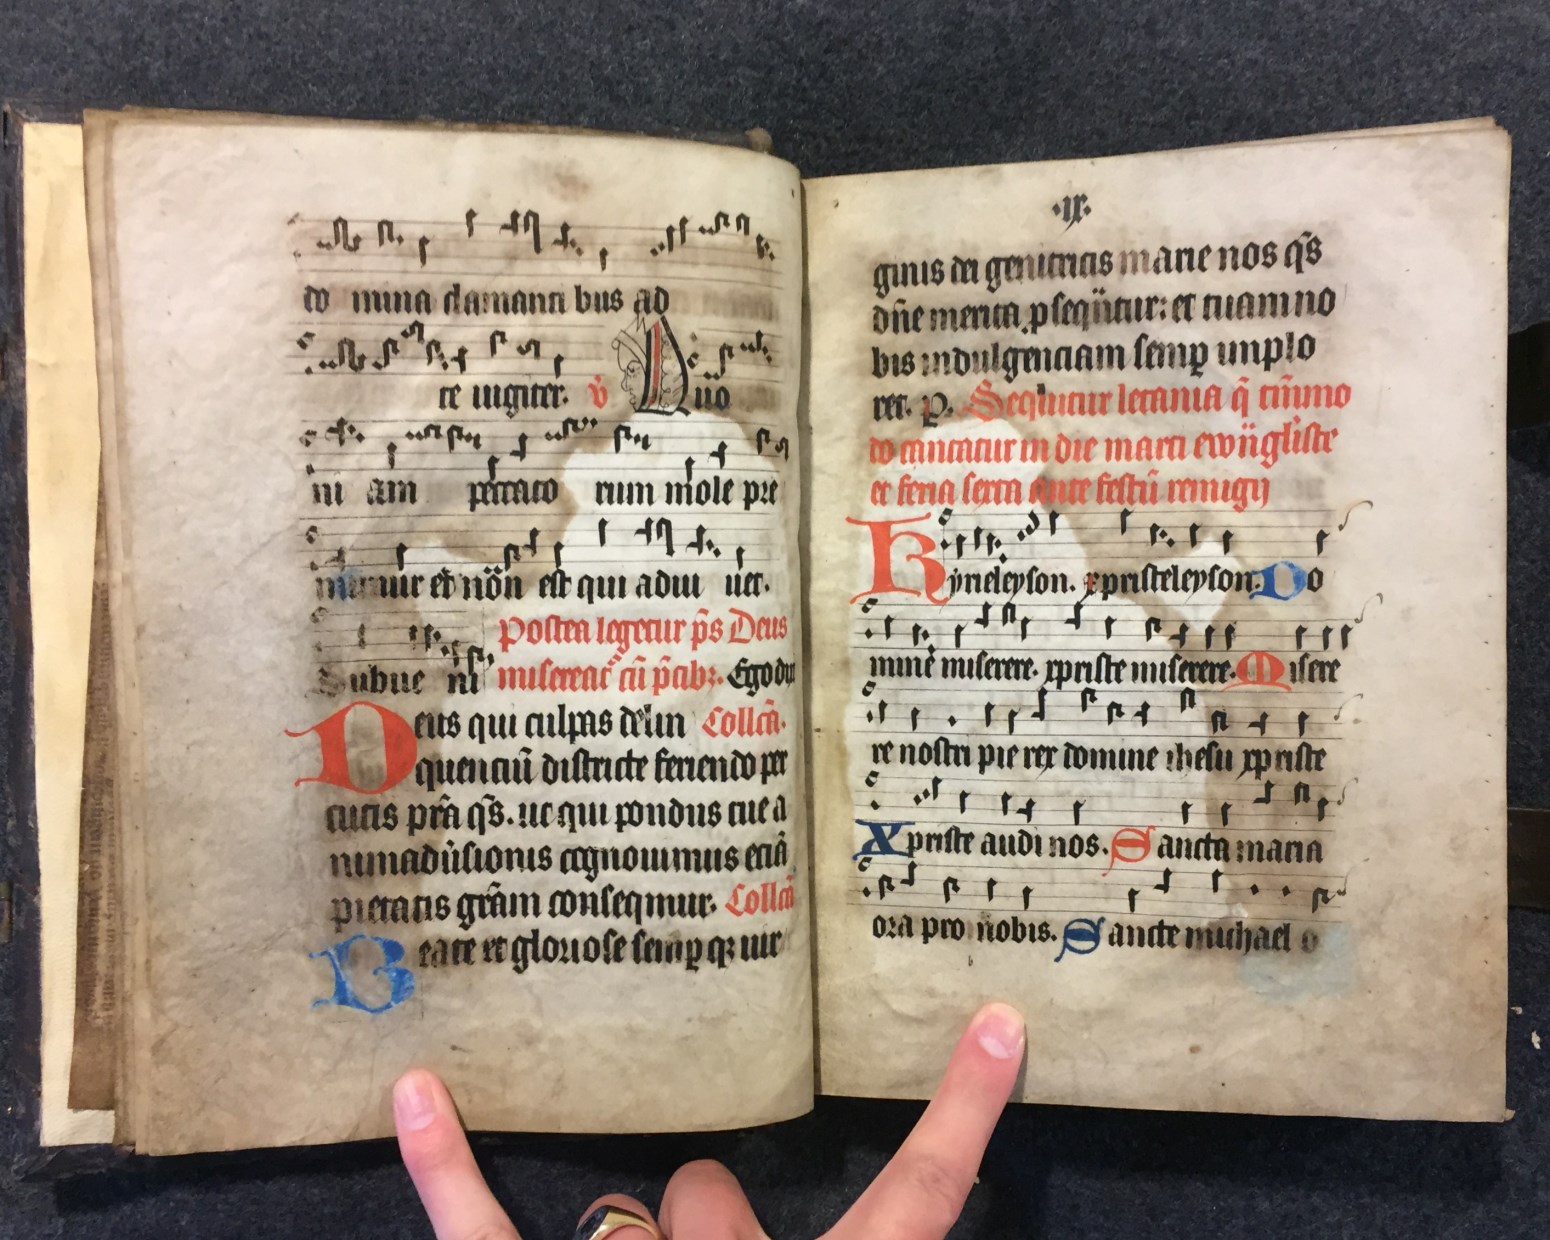 do mina clamanti bus ad
te iugiter. v̄ Q uo
ni am peccato rum mole pre
mimur et non est qui adiu uet.
Subue ni postea legetur p̄s Deus
misereat̄ cū p̄cib; Ego dix
Deus qui culpas delin Collc̄a.
quenciū districte feriendo per
cutis pr̄a q̄s. ut qui pondus tue a
nimaduersionis cognouimus eciā
pietatis grām conseqmur. Collc̄a
Beate et gloriose semp qz uir
·ix·
ginis dei genitricis marie nos q̄s
dn̄e merita psequātur: et tuam no
bis indulgenciam semp implo
ret. p. Sequitur letania q̄ cū no
do cantatur in die marci ewangliste
et feria sexta ante festū remigij
Kyrieleyson. xpristeleyson. Do
mine miserere. xpriste miserere. Misere
re nostri pie rex domine ihesu xpriste
Xpriste audi nos. Sancta maria
ora pro nobis. Sancte michael o